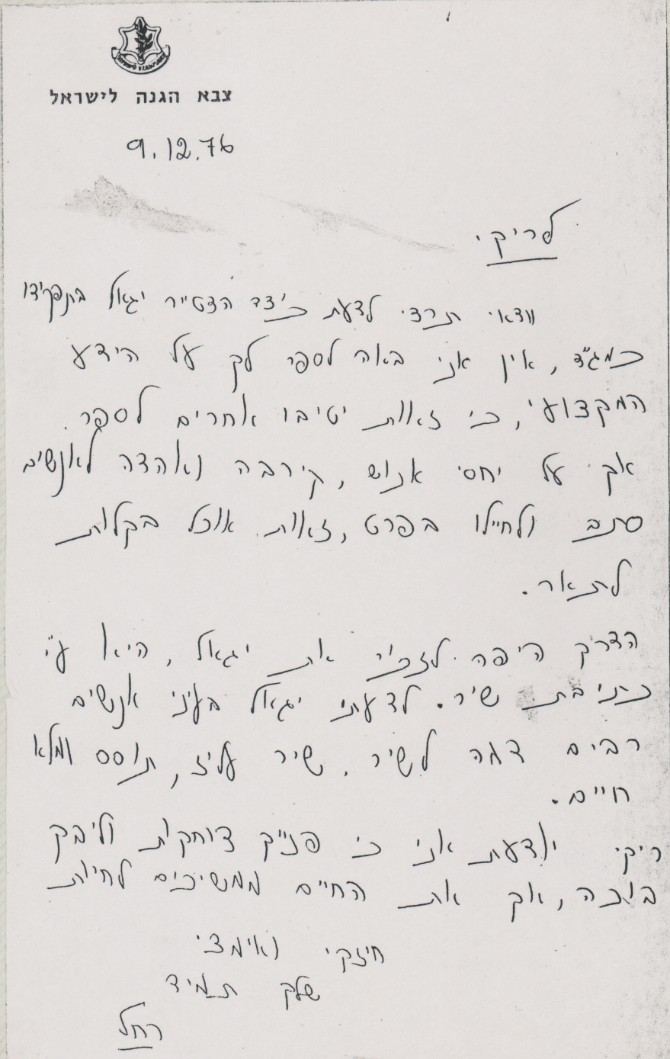 צבא הגנה לישראל
9.12.76
לריקי.
וודאי תרצי לדעת כיצד הצטייר יגאל בתפקידו
כמג"ד, אין אני באה לספר לך על הידע
המקצועי, כי זאת יטיבו אחרים לספר.
אך על יחסי אנוש, קירבה ואהדה לאנשים
סתם ולחייליו בפרט, זאת אוכל בקלות
לתאר.
הדרך היפה לזכור את יגאל, היא ע"י
כתיבת שיר. לדעתי יגאל בעיני אנשים
רבים דמה לשיר. שיר עליז, תוסס ומלא
חיים.
ריקי יודעת אני כי פנייך צוחקות וליבך
בוכה, אך את החיים ממשיכים לחיות
חיזקי ואימצי
שלך תמיד
רחל